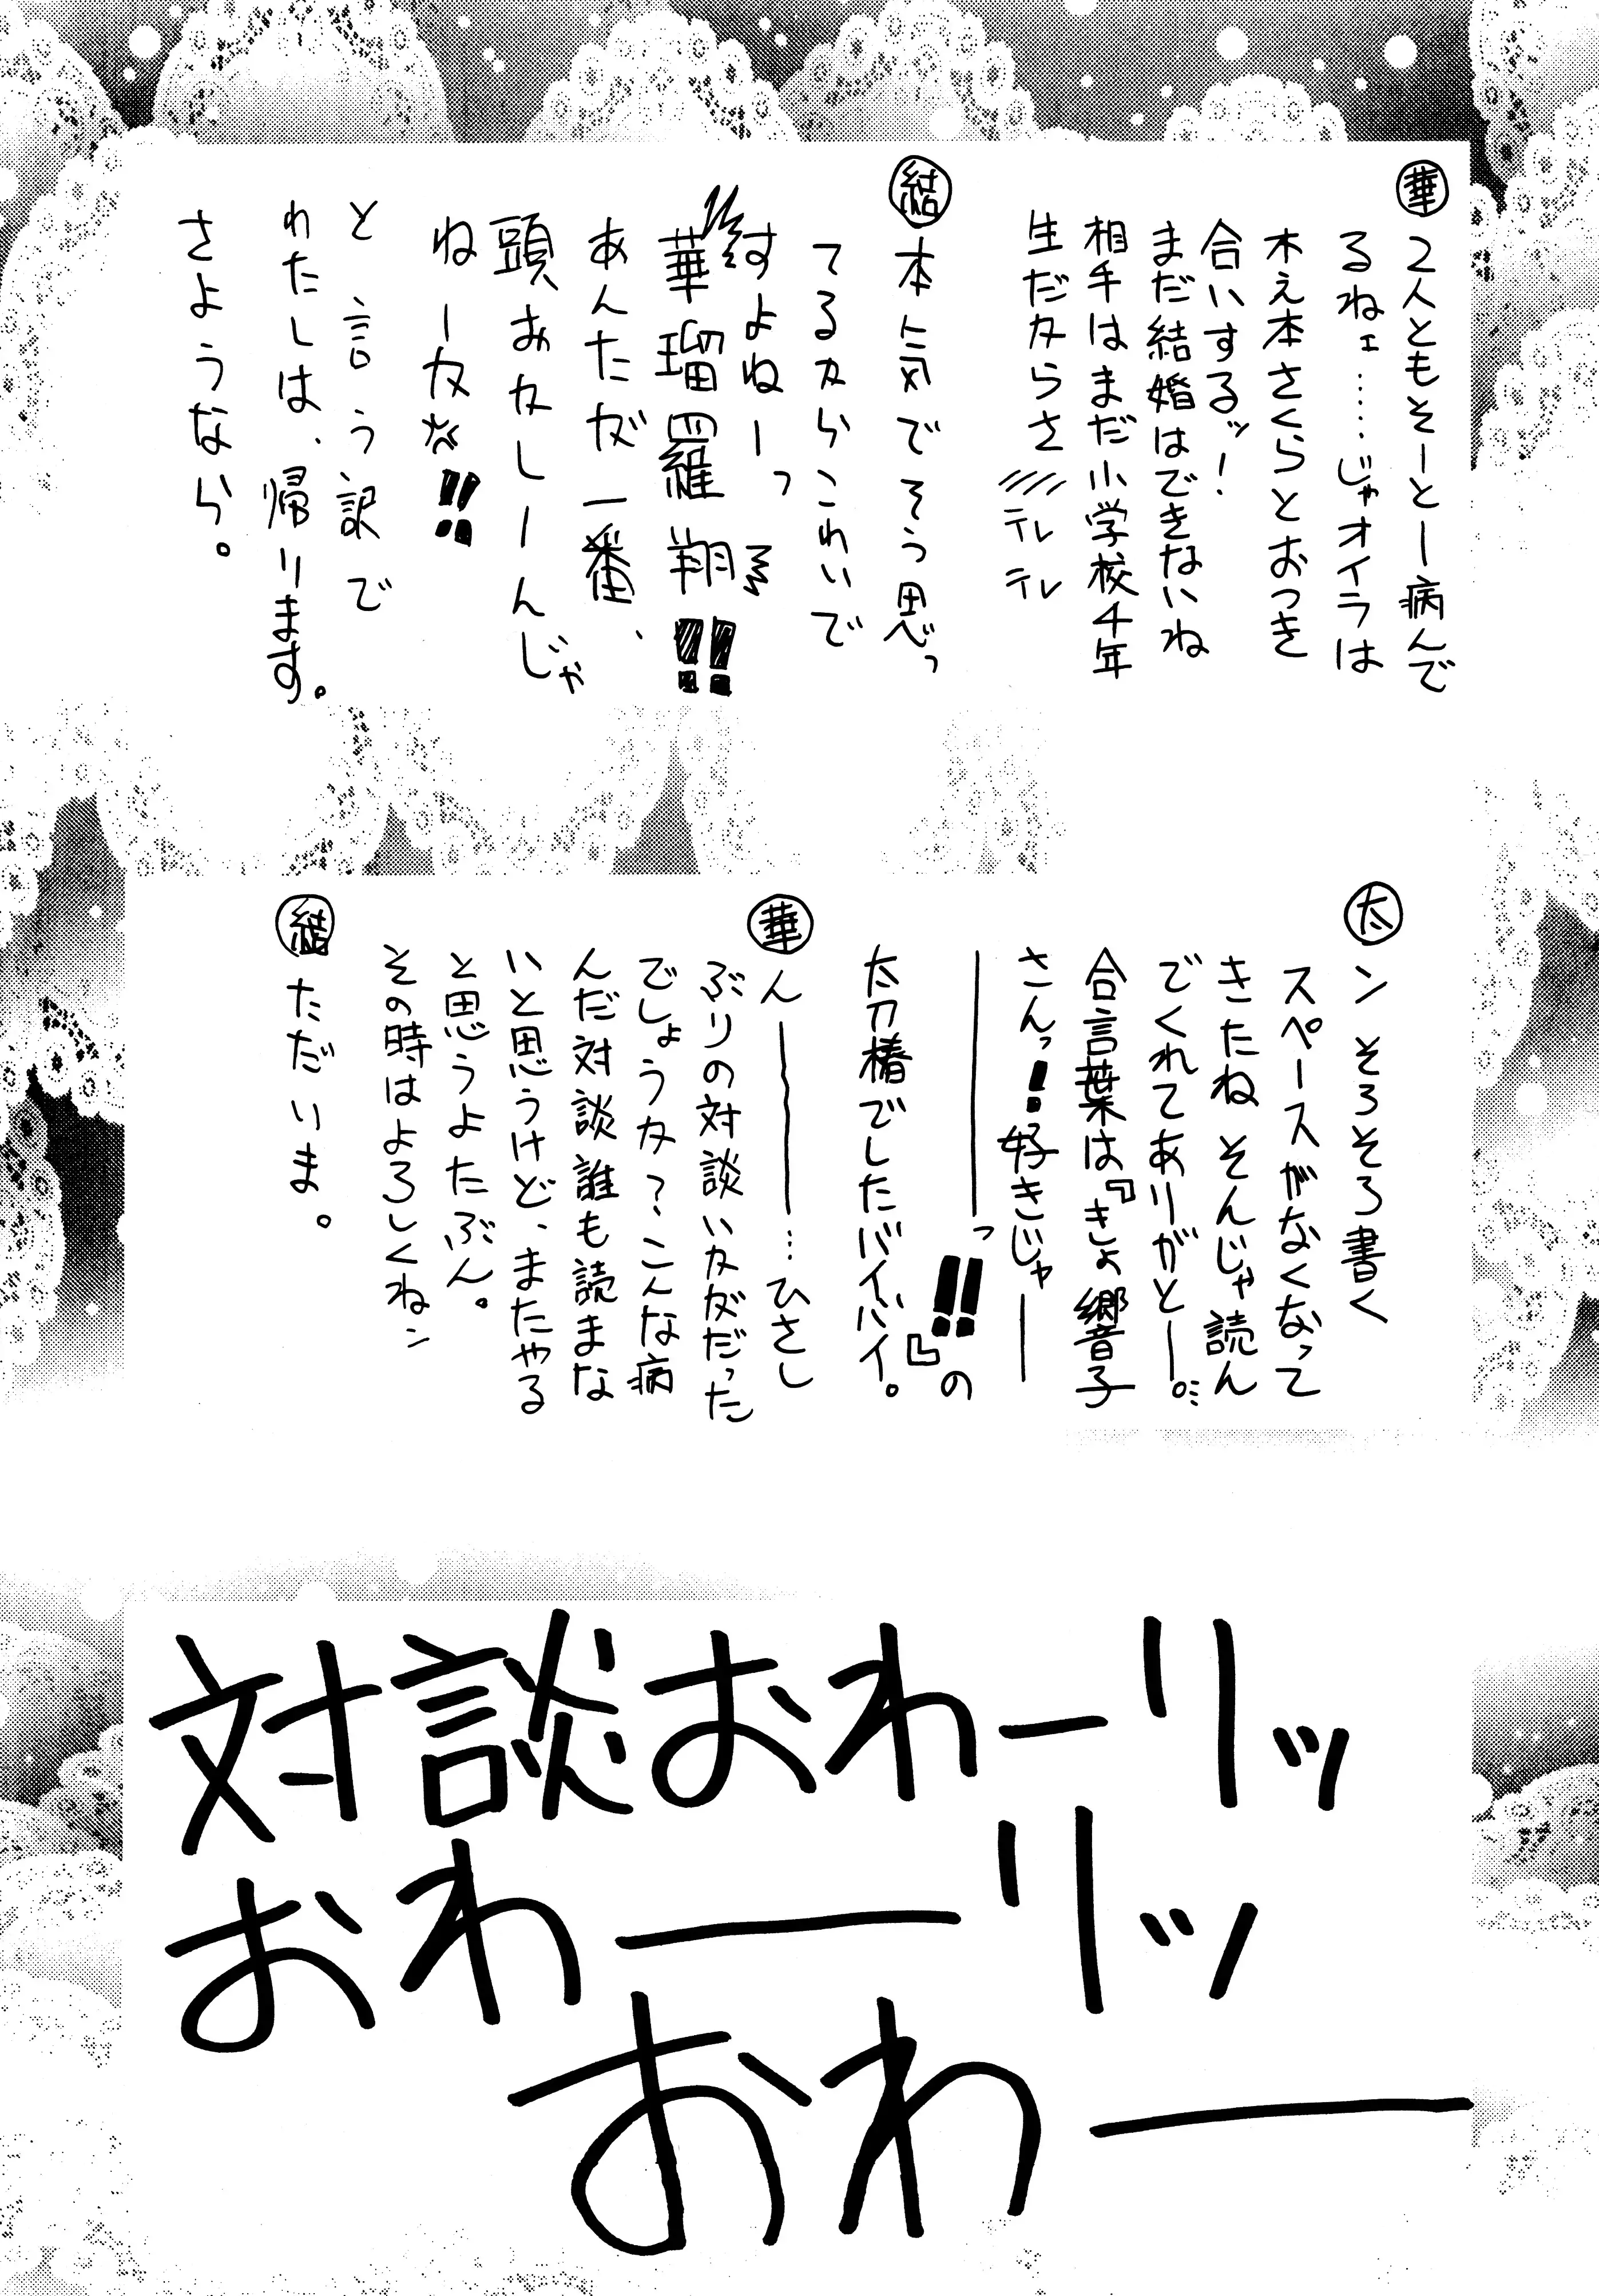 華 2人ともそーとー病んで
るねェ……じゃオイラは
木え本さくらとおつき
合いするッ!
まだ結婚はできないね
相手はまだ小学校4年
生だからさ///テレテレ
結 本気でそう思っ
てるからこわいで
すよねーっ
華瑠羅翔!!
あんたが一番、
頭おかしーんじゃ
ねーか!!
と言う訳で
わたしは、帰ります。
さようなら。
太 ン そろそろ書く
スペースがなくなって
きたね そんじゃ読ん
でくれてありがとー。
合言葉は『きょ郷音子
さんっ!好きじゃー
ーっ!!』の
太刀椿でしたバイバイ。
華 んー…ひさし
ぶりの対談いかがだった
でしょうか?こんな病
んだ対談誰も読まな
いと思うけど、またやる
と思うよたぶん。
その時はよろしくねン
結 ただいま。
対談おわーリッ
おわーリッ
おわー